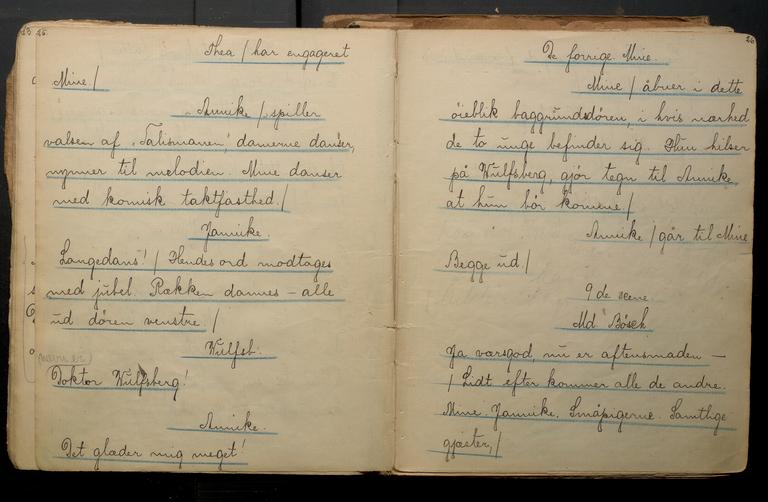 25
Thea / har engageret
Mine /
Annike / spiller
valsen af „Talismanen", damerne danser,
nynner til melodien. Mine danser
med komisk taktfasthed. /
Jannike.
Langedans! / Hendes ord modtages
med jubel. Rækken dannes – alle
ud døren venstre. /
Wulfsb.
Doktor Wulfsberg!
Annike.
Det glæder mig meget!
26
De forrige. Mine.
Mine / åbner i dette
øieblik baggrundsdøren, i hvis nærhed
de to unge befinder sig. Hun hilser
på Wulfsberg, gjør tegn til Annike,
at hun bør komme /
Annike / går til Mine
Begge ud. /
9de scene
Md. Bösch
Ja værsgod, nu er aftensmaden –
/ Lidt efter kommer alle de andre.
Mine. Jannike. Småpigerne. Samtlige
gjæster, /